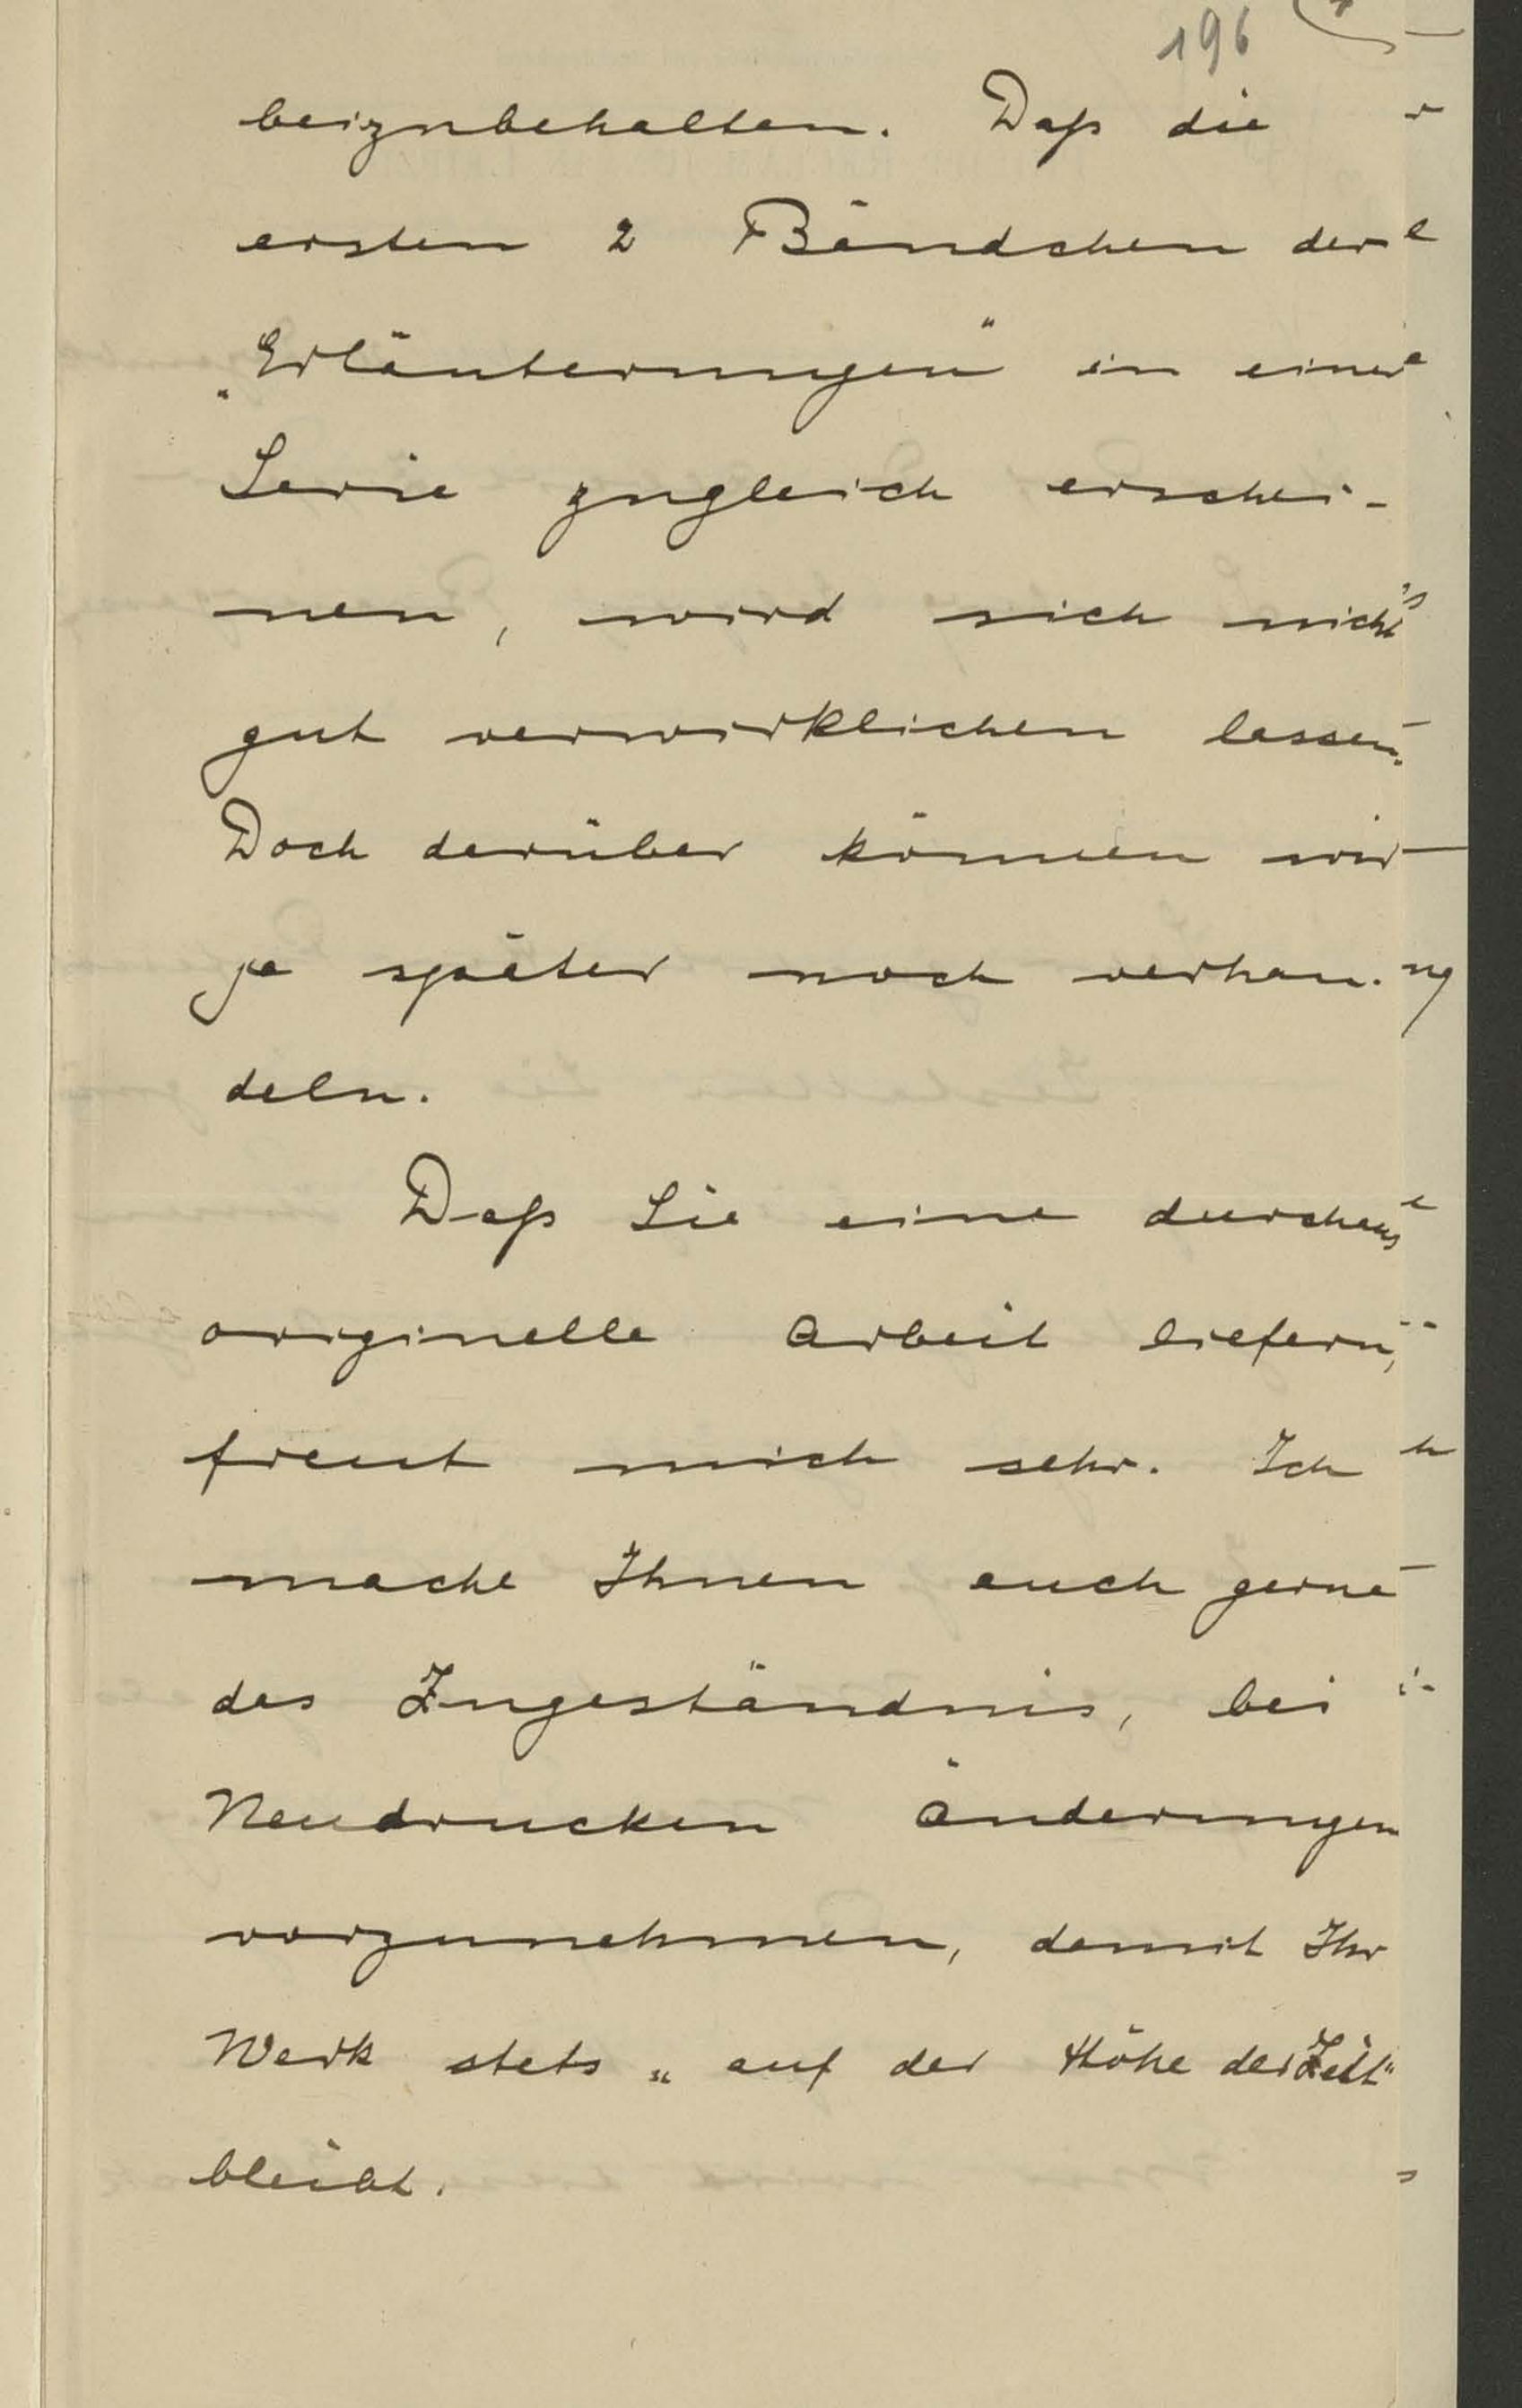 196
beizubehalten. Daß die
ersten 2 Bändchen der
„Erläuterungen" in einer
Serie zugleich erschei-
nen, wird sich nicht
gut verwirklichen lassen.
Doch darüber können wir
ja später noch verhan-
deln.
Daß Sie eine durchaus
originelle Arbeit liefern,
freut mich sehr. Ich
mache Ihnen auch gerne
das Zugeständnis, bei
Neudrucken Änderungen
vorzunehmen, damit Ihr
Werk stets „auf der Höhe der Zeit"
bleibt.